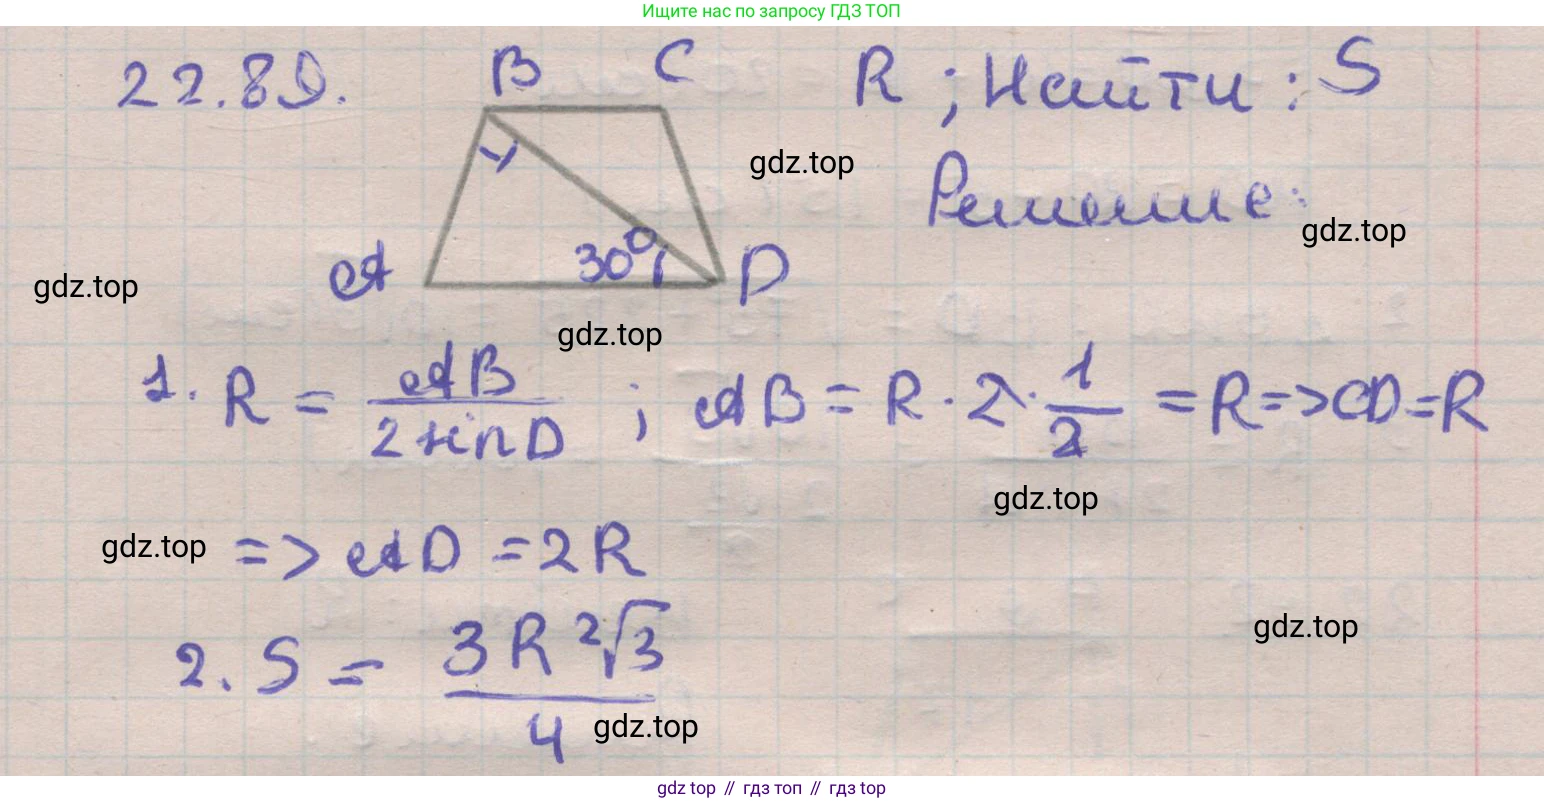 Ищите нас по запросу ГДЗ ТОП
22.89.
B C
R ; Найти : S
gdz.top
Решение:
gdz.top
A 30° D
gdz.top
gdz.top
1. R = AB / 2 sin D ; AB = R · 2 · 1/2 = R => CD = R
gdz.top
gdz.top => AD = 2R
gdz.top
2. S = 3R²√3 / 4
gdz.top
gdz top // гдз топ // гдз top